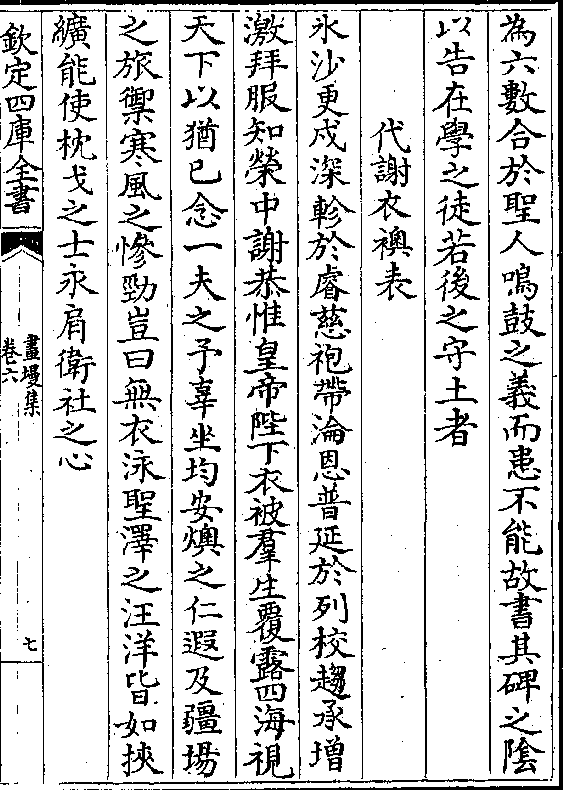 為六數合於聖人鳴鼓之義而患不能故書其碑之陰
以告在學之徒若後之守土者
代謝衣襖表
氷沙更戍深軫於睿慈袍帶淪恩普延於列校趨承增
激拜服知榮中謝恭惟皇帝陛下衣被羣生覆露四海視
天下以猶己念一夫之予辜坐均安燠之仁遐及疆埸
之旅禦寒風之慘勁豈曰無衣泳聖澤之汪洋皆如挾
纊能使枕戈之士永肩衛社之心
欽定四庫全書
畫墁集
卷六
七